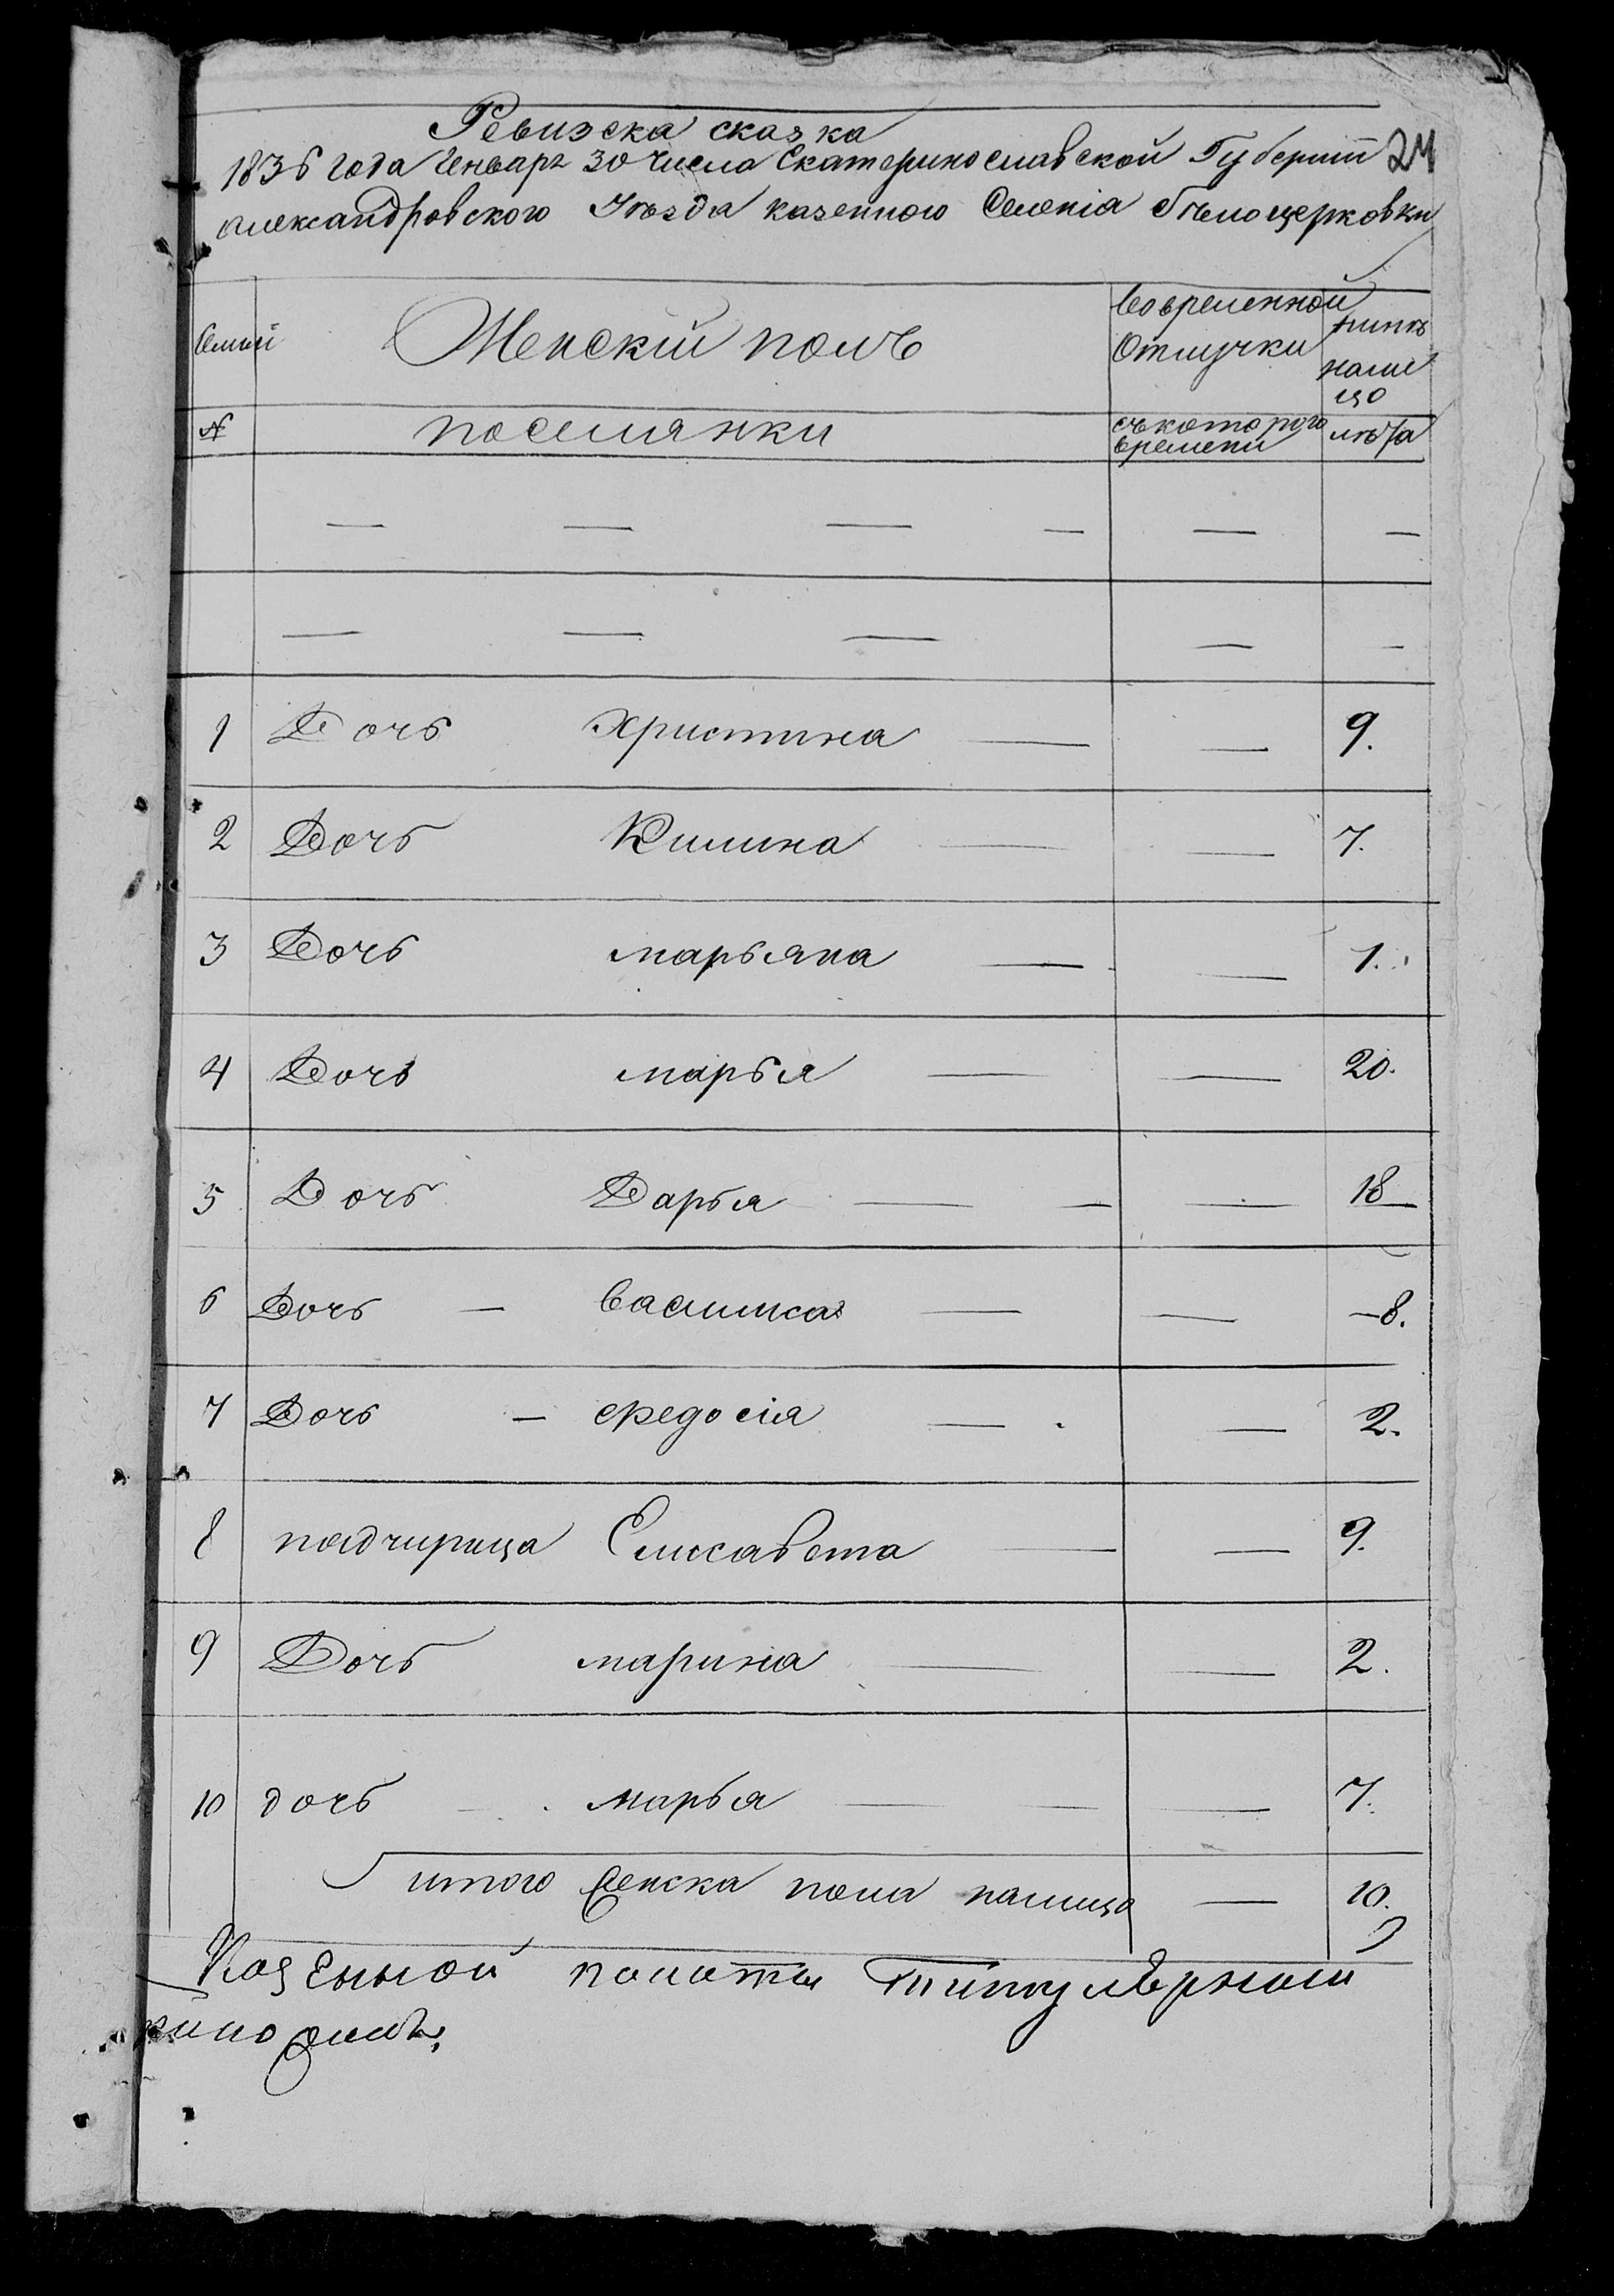 Ревизска сказка
1836 года Генваря 30 числа Екатеринославской Губернии 24
Александровского Уѣзда казенного Селенія Бѣлоцерковки
Семьи Женскій полъ вовременной Отлучки нинѣ налицо
№ поселянки съ которого времени лѣта
— — — — — —
— — — — —
1 Дочь Христина — — 9.
2 Дочь Килина — — 7.
3 Дочь марьяна — — 1.
4 Дочь марья — — 20.
5 Дочь Дарья — — — 18
6 Дочь — василиса — — 8.
7 Дочь — Федосія — — 2.
8 падчирица Елисавета — — 9.
9 Дочь марина — — 2.
10 дочь марья — — — 7.
итого женска пола налицо — 10.
Казенной палаты титулѣрной